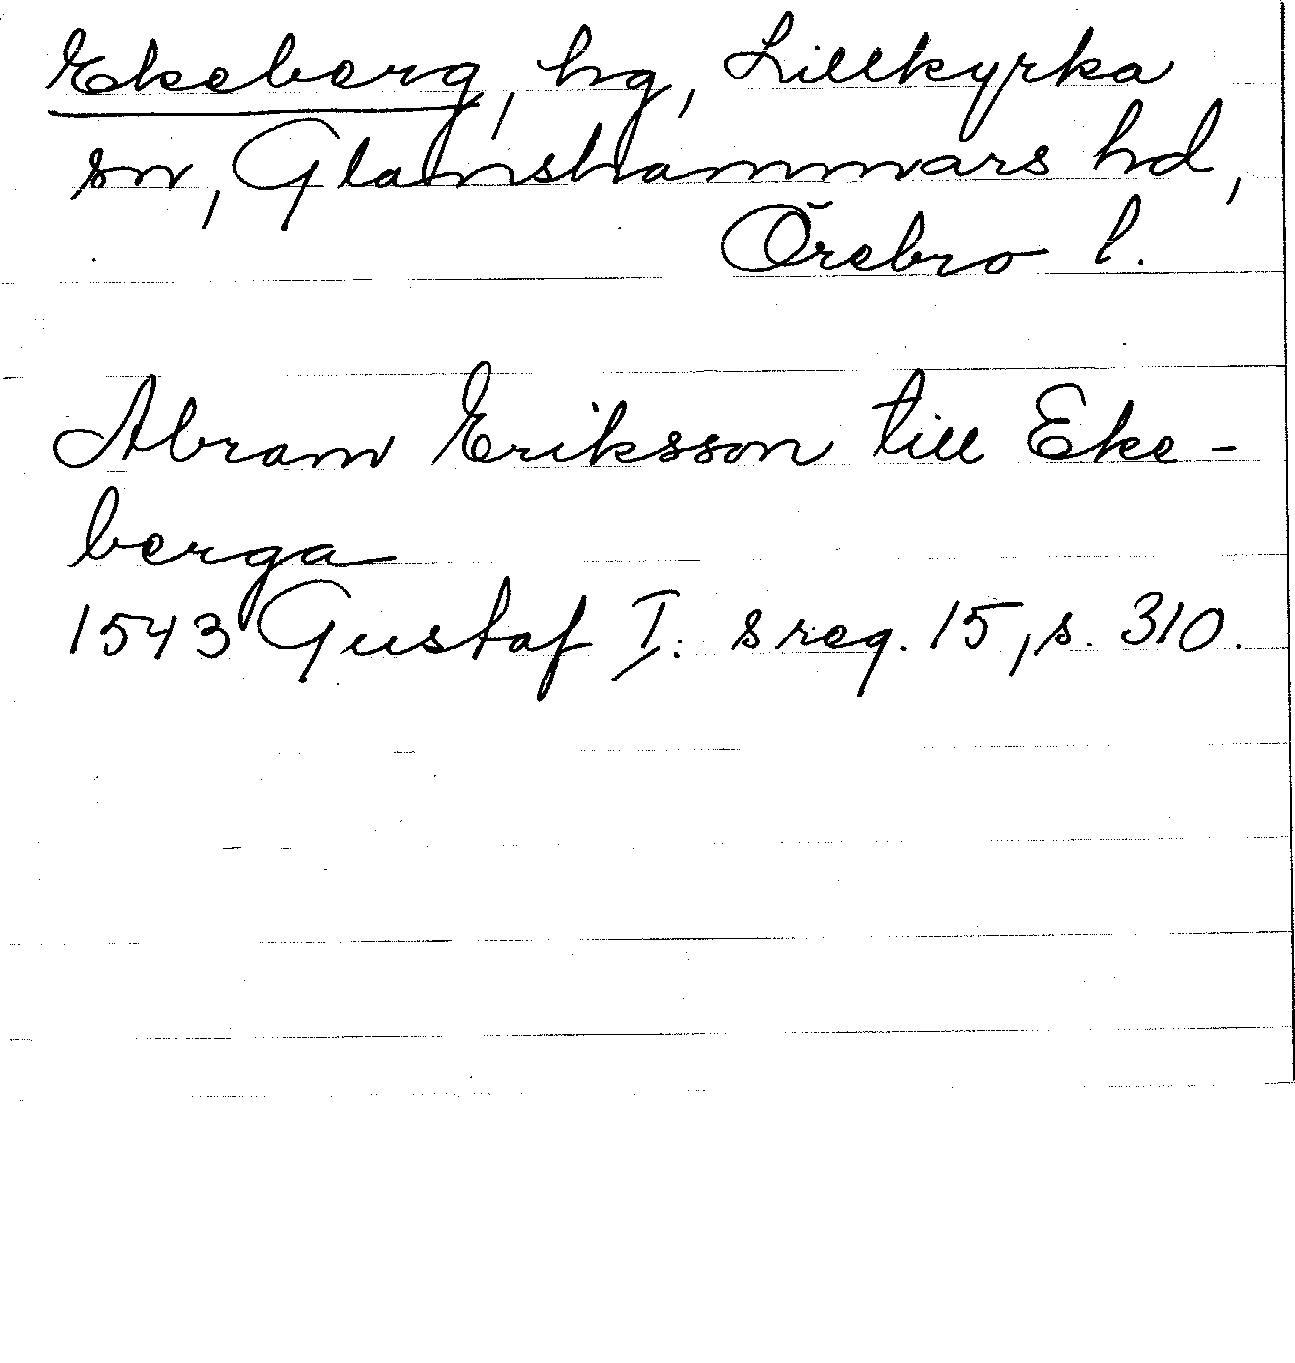 Ekeberg, hg, Lillkyrka
sn, Glanshammars hd,
Örebro l.
Abram Eriksson till Eke-
berga
1543 Gustaf I: s reg. 15, s. 310.